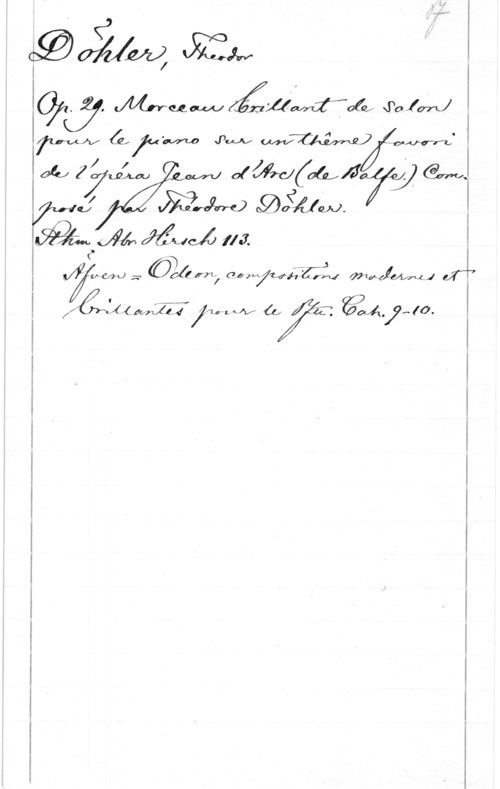 Pf
Döhler, Theodor
Op. 29. Morceau brillant de salon
pour le piano sur un thême favori
de l'opéra Jean d'Arc (de Balfe.) Com-
posé par Théodore Döhler.
Sthm, Abr. Hirsch 113.
Äfven = Odeon, compositions modernes et
brillantes pour le Pfte. Cah. 9-10.